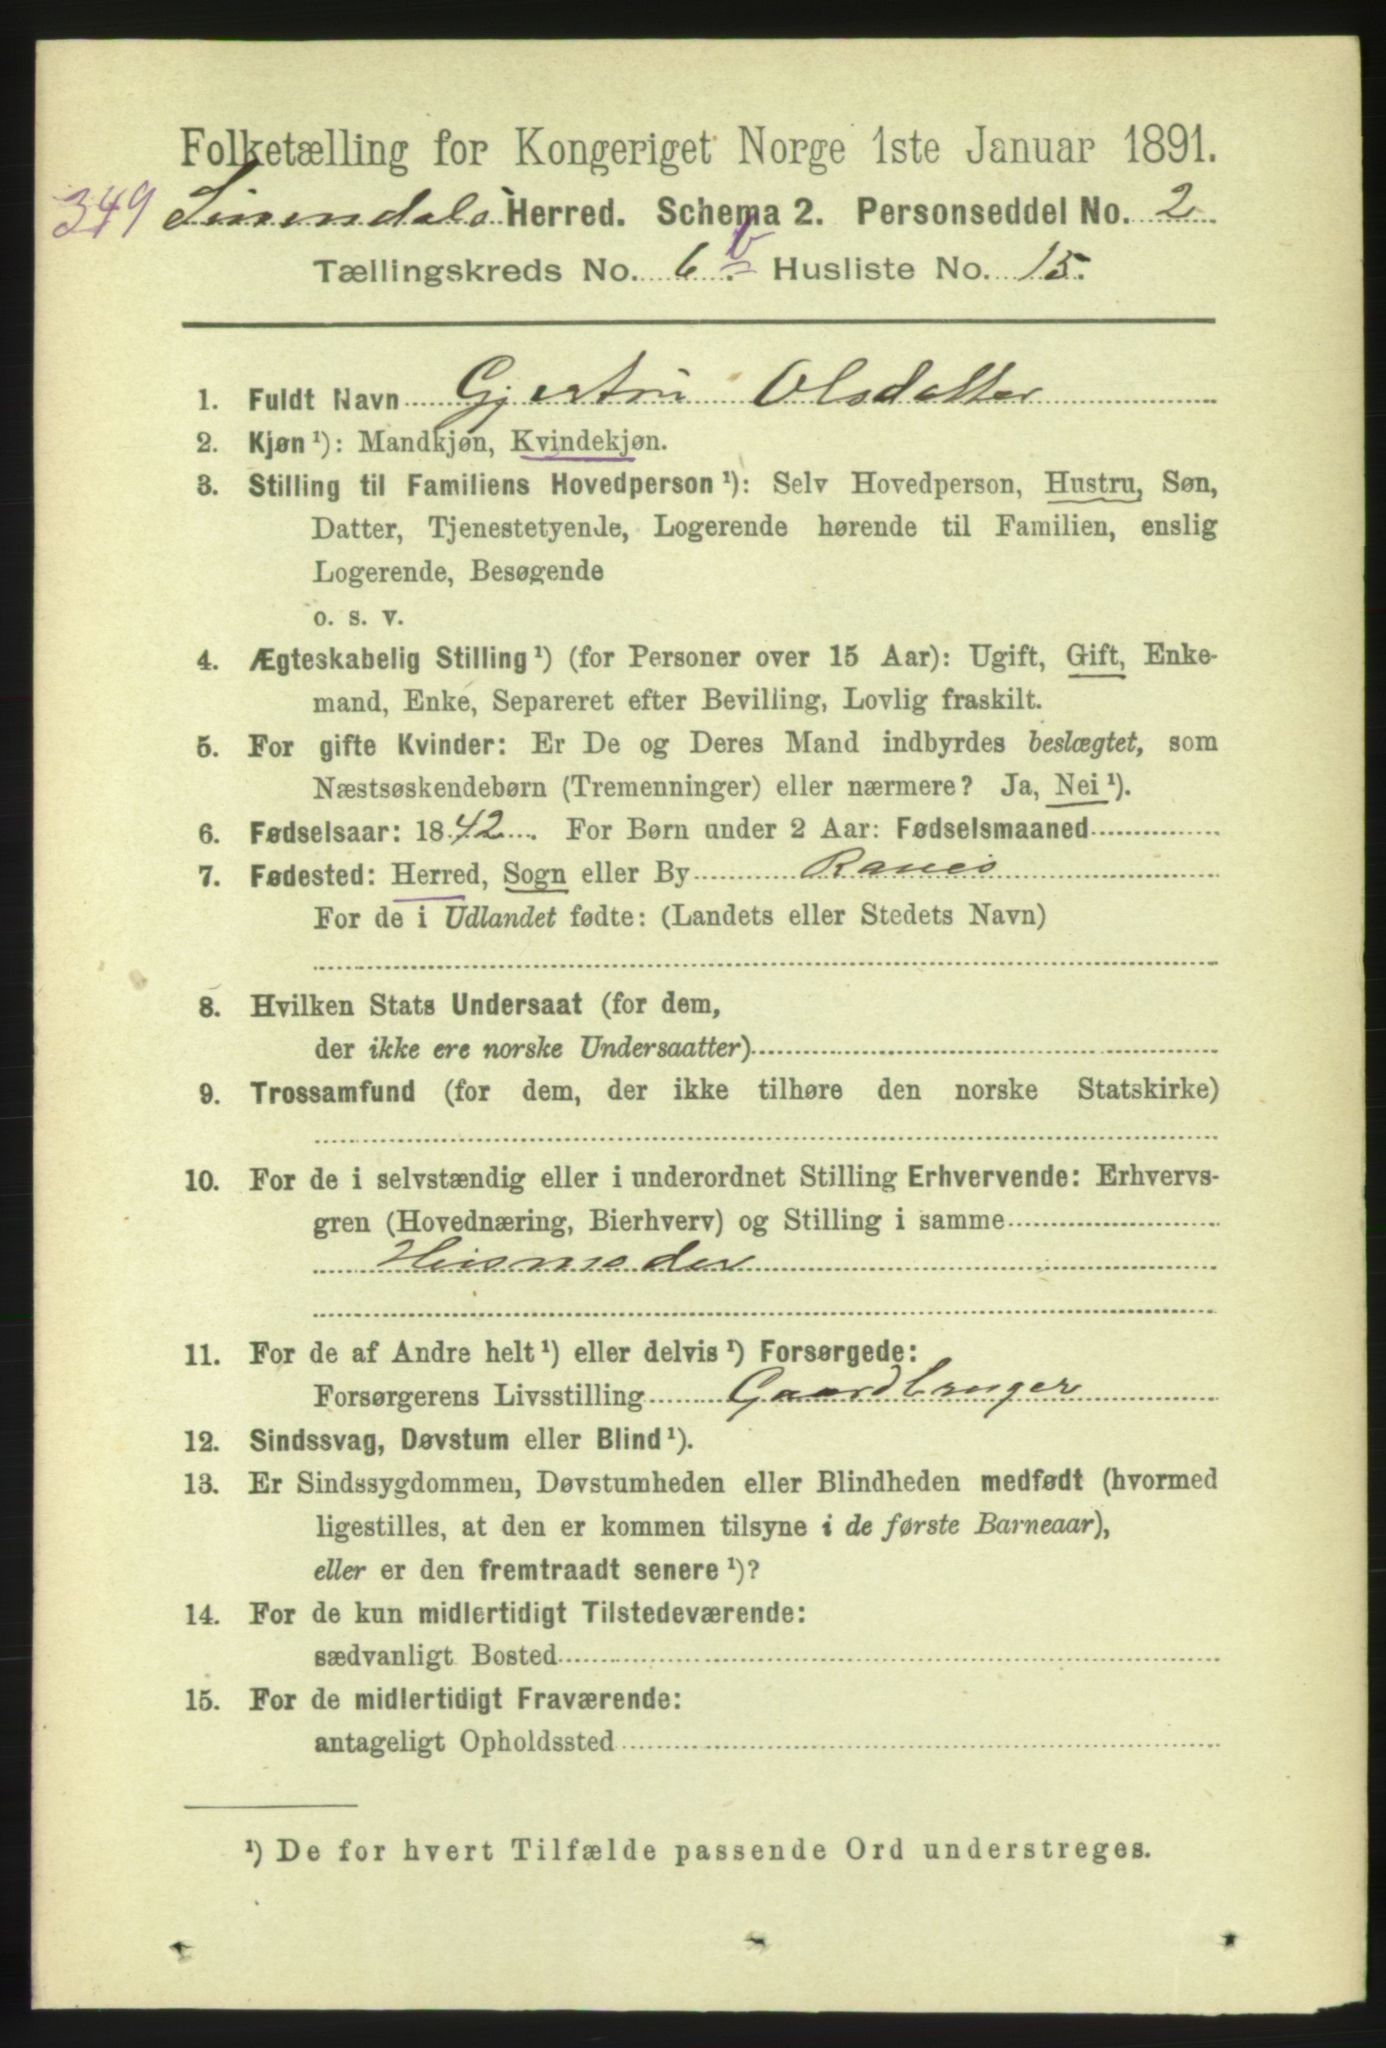 Folketælling for Kongeriget Norge 1ste Januar 1891.
349 Surendals Herred. Schema 2. Personseddel No. 2
Tællingskreds No. 6. b Husliste No. 15.
1. Fuldt Navn Gjertru Olsdatter
2. Kjøn ¹): Mandkjøn, Kvindekjøn.
3. Stilling til Familiens Hovedperson ¹): Selv Hovedperson, Hustru, Søn,
Datter, Tjenestetyende, Logerende hørende til Familien, enslig
Logerende, Besøgende
o. s. v.
4. Ægteskabelig Stilling ¹) (for Personer over 15 Aar): Ugift, Gift, Enke-
mand, Enke, Separeret efter Bevilling, Lovlig fraskilt.
5. For gifte Kvinder: Er De og Deres Mand indbyrdes beslægtet, som
Næstsøskendebørn (Tremenninger) eller nærmere? Ja, Nei ¹).
6. Fødselsaar: 1842. For Børn under 2 Aar: Fødselsmaaned
7. Fødested: Herred, Sogn eller By Ranes
For de i Udlandet fødte: (Landets eller Stedets Navn)
8. Hvilken Stats Undersaat (for dem,
der ikke ere norske Undersaatter)
9. Trossamfund (for dem, der ikke tilhøre den norske Statskirke)
10. For de i selvstændig eller i underordnet Stilling Erhvervende: Erhvervs-
gren (Hovednæring, Bierhverv) og Stilling i samme
Husmoder
11. For de af Andre helt ¹) eller delvis ¹) Forsørgede:
Forsørgerens Livsstilling Gaardbruger
12. Sindssvag, Døvstum eller Blind ¹).
13. Er Sindssygdommen, Døvstumheden eller Blindheden medfødt (hvormed
ligestilles, at den er kommen tilsyne i de første Barneaar),
eller er den fremtraadt senere ¹)?
14. For de kun midlertidigt Tilstedeværende:
sædvanligt Bosted
15. For de midlertidigt Fraværende:
antageligt Opholdssted
¹) De for hvert Tilfælde passende Ord understreges.